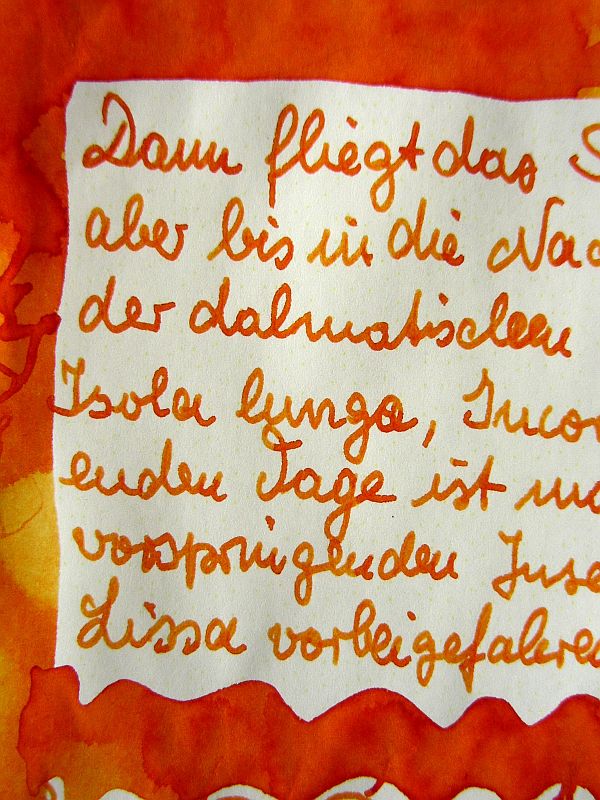 Dann fliegt das
aber bis in die
der dalmatischen
Isola lunga,
enden Tage ist
vorspringenden
Lissa vorbeigefahren